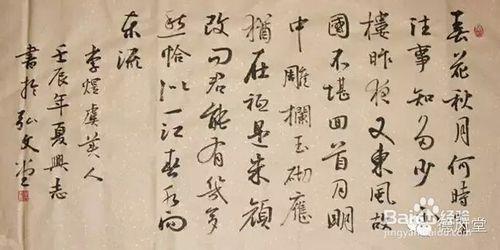 春花秋月何時
往事知多少小
樓昨夜又東風故
國不堪回首月明
中雕欄玉砌應
猶在祗是朱顏
改問君能有幾多
愁恰似一江春水向
東流
李煜虞美人
壬辰年夏興志
書於弘文堂
Baidu
jingyan.baidu.com